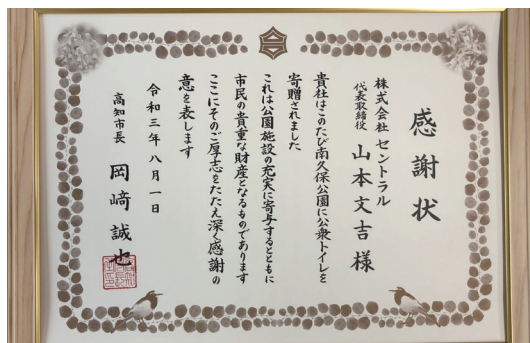 感謝状
株式会社 セントラル
代表取締役 山本文吉 様
貴社はこのたび南久保公園に公衆トイレを
寄贈されました
これは公園施設の充実に寄与するとともに
市民の貴重な財産となるものであります
ここにそのご厚志をたたえ深く感謝の
意を表します
令和三年八月一日
高知市長 岡﨑誠也